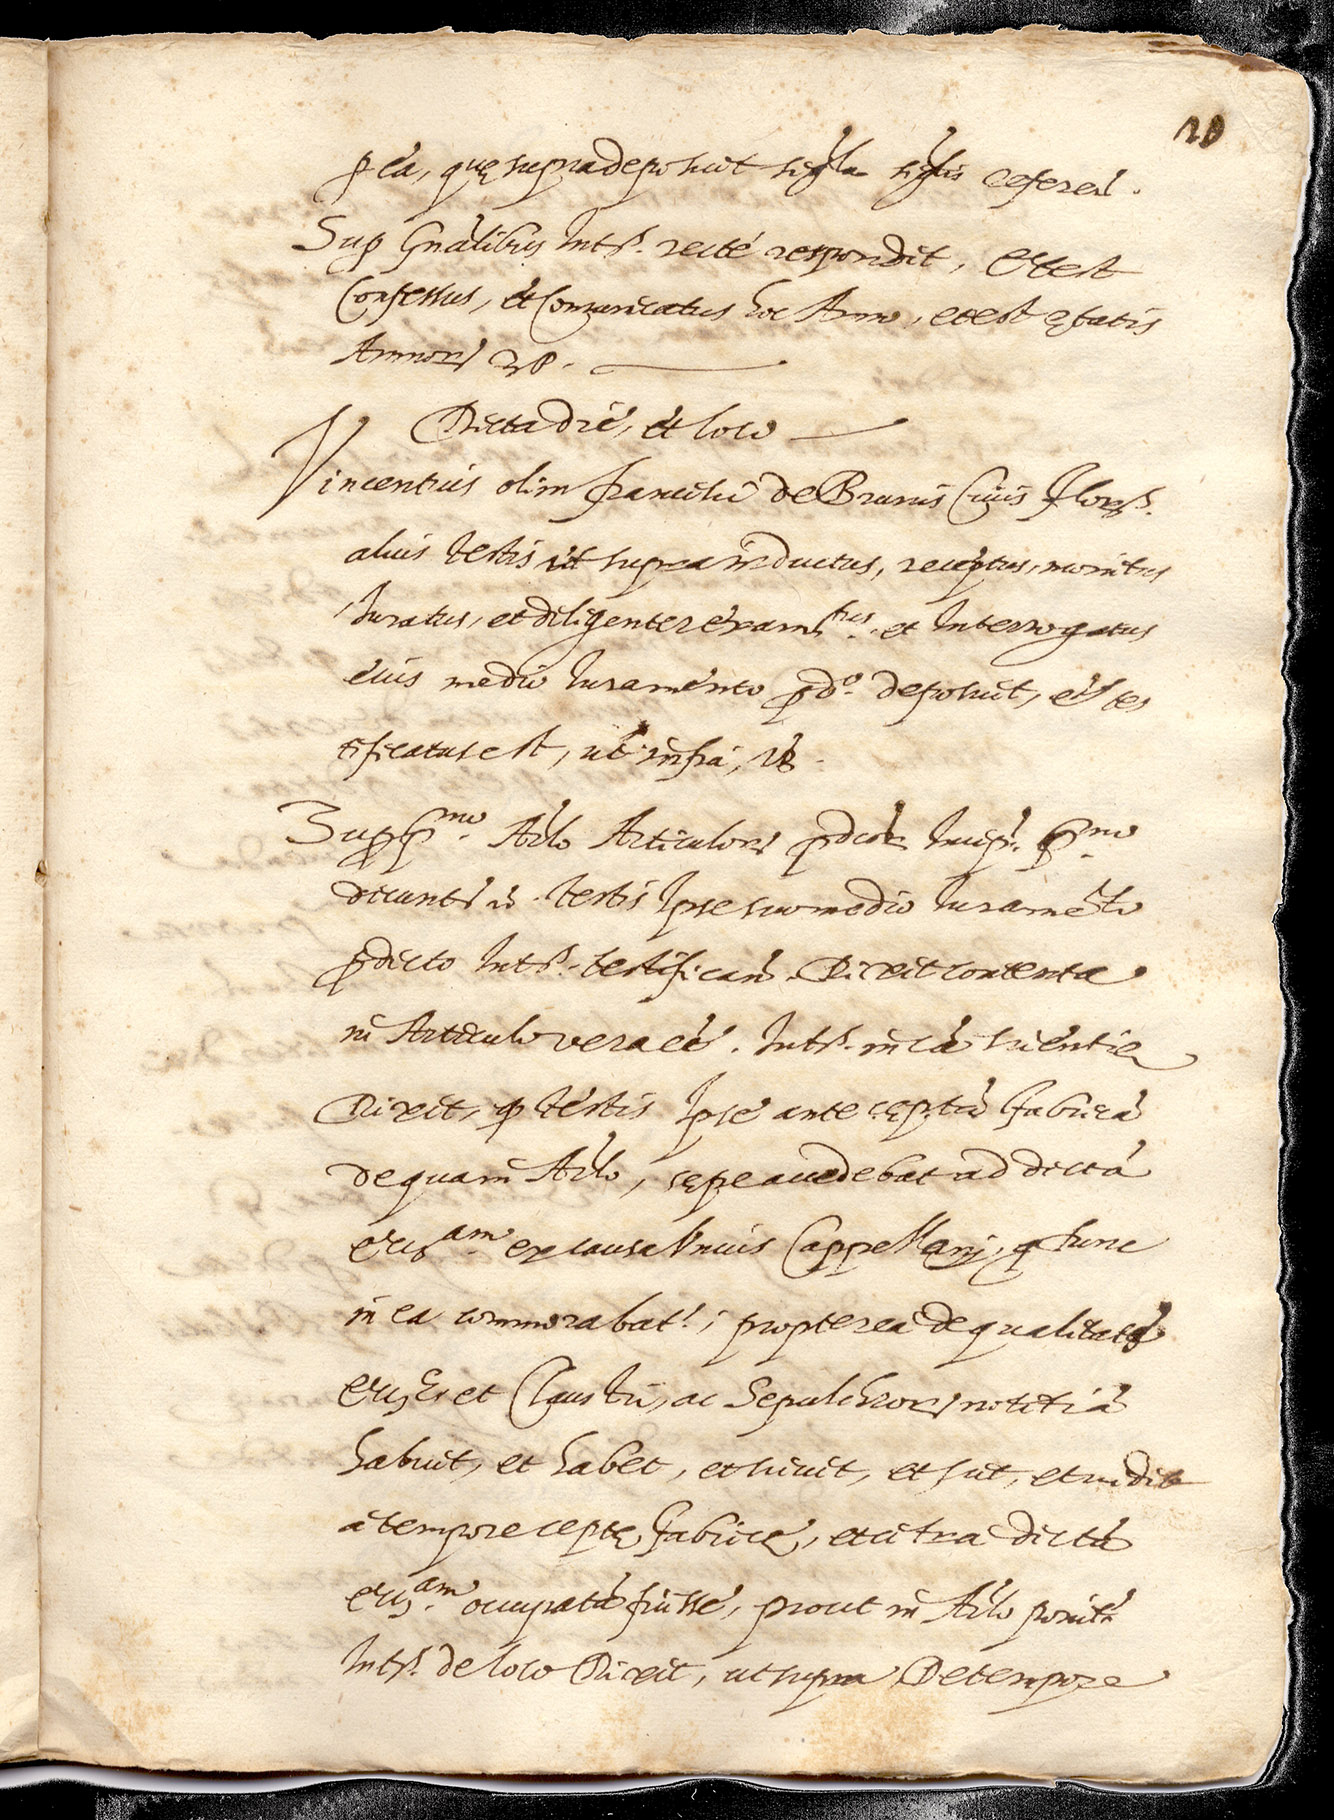 20
p ea, quę supra deposuit sigla siglis referen.
Sup Gnalibus Int.s recte respondit, et est
Confessus, et Comunicatus hoc Anno, et est ętatis
Annor 38.
Dicta die, et loco
Vincentius olim Francisci de Brunis Civis Flor.s
alius testis ut supra inductus, receptus, monitus
Iuratus, et diligenter exam.tus et Interrogatus
eius medio Iuramento pd.o deposuit, et tes
tificatus est, ut infra, vz.
Sup p.mo Arlo Articulor pdictor Incip. p.mo
dicunt testis Ipse suo medio Iuramento
pdicto Int.s testifican. Dixit contenta
in Articulo vera eē. Int.s in cā scientię
Dixit, q testis Ipse ante ceptā fabricā
de qua in Arlo, sępe accedebat ad dictā
eccl.am ex causa Unius Cappellani, q tunc
in ea commorabat.r, propterea de qualitate
eccl.ę et Claustri, ac Sepulchror notitiā
habuit, et habet, et scivit, et scit, et vidit
a tempore ceptę fabricę, et citra dictā
eccl.am occupatā fuisse, prout in Arlo ponitr
Int.s de loco Dixit, ut supra De tempore